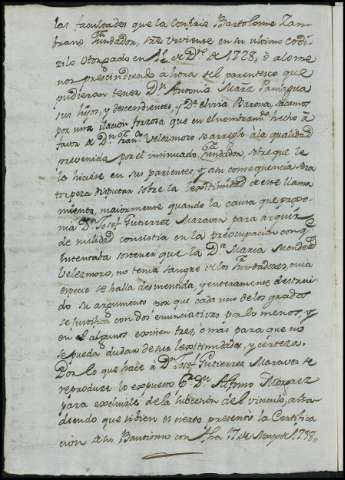 las facultades que la confirió Bartolome Zam-
brano Fundador,
en su ultimo Codi-
cilo otorgado en de 1728, o alome
nos prescindiendo ahora del parentesco que
pudieran tener Dn. Antonia Maria Paniagua
sus hijos, y descendientes y Dn. Elvira Barona, sacamos
por una ilacion forzosa que en el nombramto. hecho à
favor de Dn. Franco. Velezmoro se arreglo à la qualidad
prevenida por el insinuado Fundador, de que
lo hiciese en sus parientes, y en consequencia
disputar sobre la legitimidad de este llama
miento, maiormente quando la causa que propo-
nia Dn. Josef Gutierrez Maraver para arguir
de nulidad consistia en la preocupacion conqe.
intentaba sostener que la Da. Maria Mendez
Velezmoro, no tenia sangre de los Fundadores, cuia
especie se halla desmentida, y enteramente destrui-
do su argumento con que cada uno de los grados
se justifica con dos enunciativas por lo menos, y
en algunos existen tres, ò mas para que no
se pueda dudar de su legitimidad, y certeza.
Por lo que hace à Dn. Josef Gutierrez Maraver se
reproduce lo expuesto Alfonso Marquez
para excluirle de la subcesion del vinculo, aña-
diendo que si bien es cierto presentó la Certifica-
cion de su Bautismo con fha. 17 de Mayo de 1738,